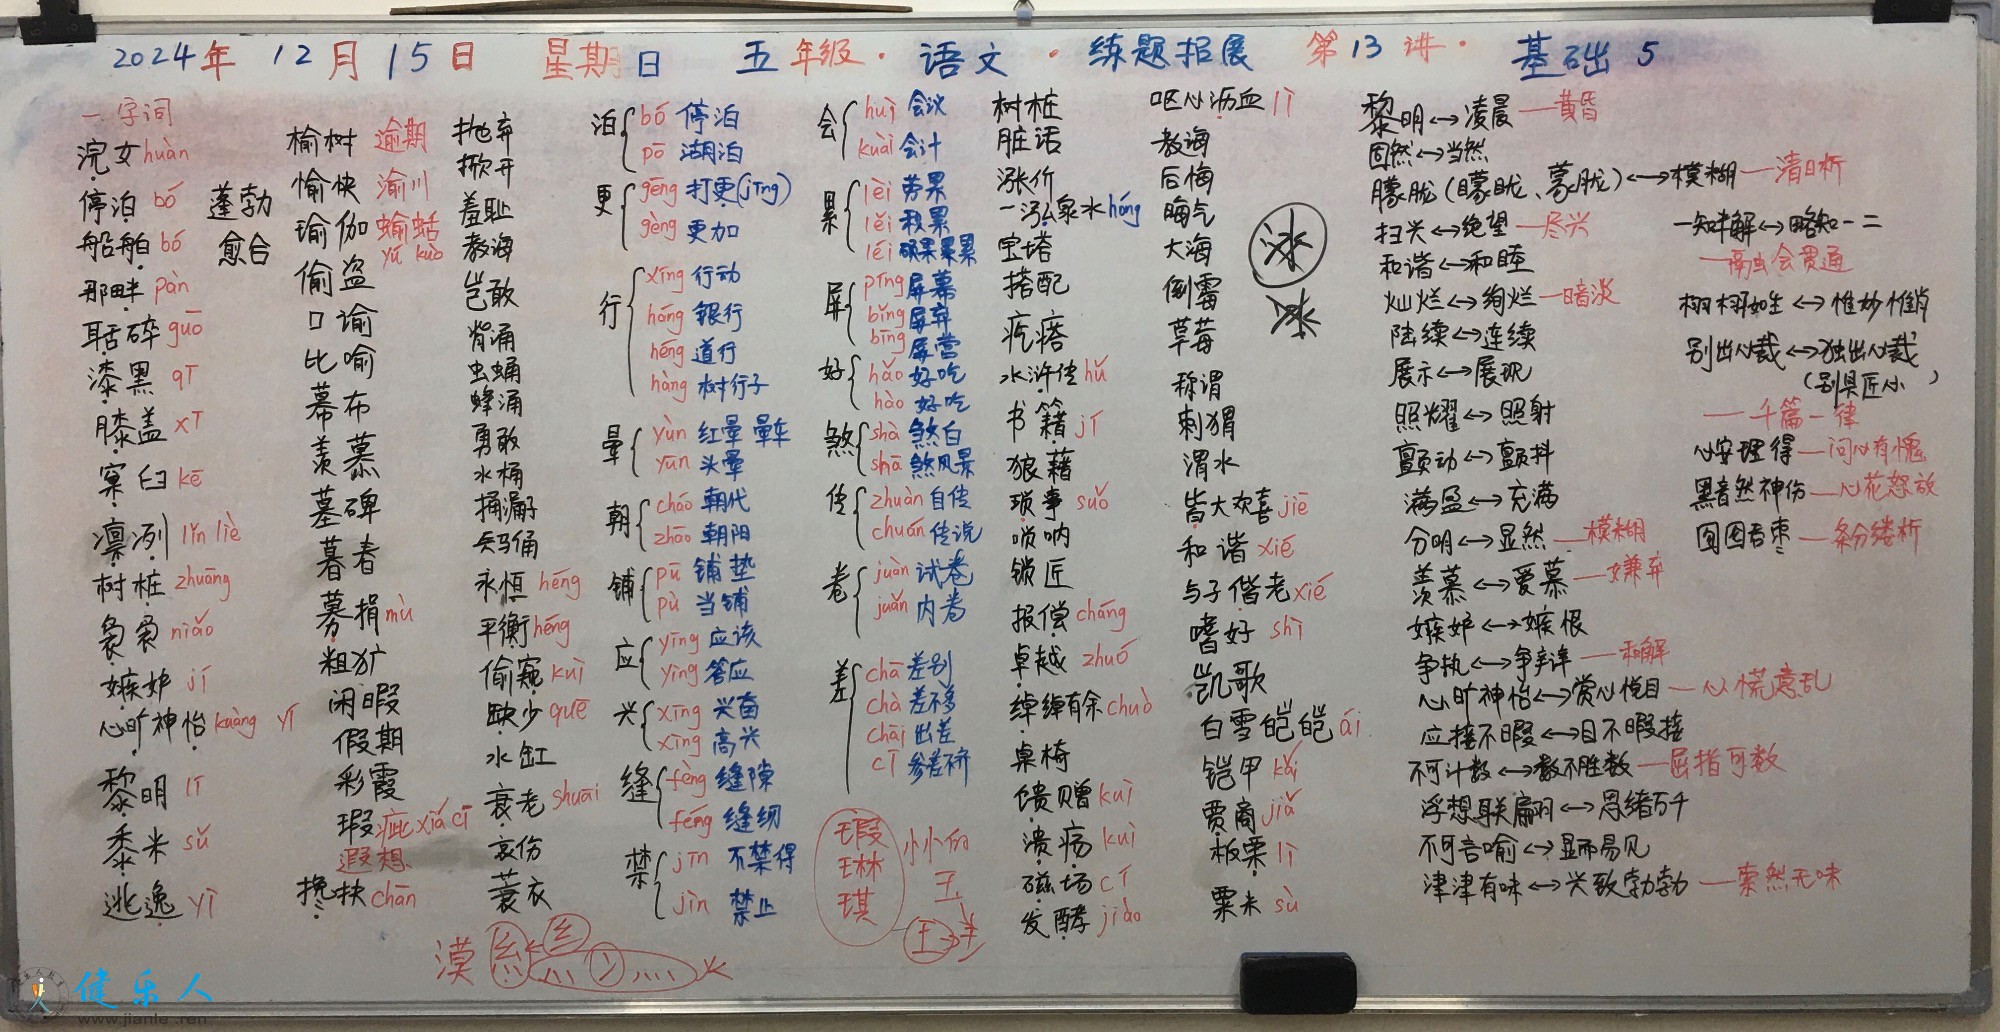 2024年 12月15日 星期日 五年级·语文·练题拓展 第13讲· 基础5
一字词
浣女 huàn
停泊 bó
船舶 bó
那畔 pàn
聒碎 guō
漆黑 qī
膝盖 xī
窠臼 kē
凛冽 lǐn liè
树桩 zhuāng
袅袅 niǎo
嫉妒 jí
心旷神怡 kuàng yí
黎明 lí
黍米 sǔ
逃逸 yì
蓬勃
愈合
榆树 逾期
愉快 渝川
瑜伽 蝓蛞
yú kuò
偷盗
口谕
比喻
幕布
羡慕
墓碑
暮春
募捐 mù
粗犷
闲暇
假期
彩霞
瑕疵 xiá cī
遐想
搀扶 chān
抛弃
掀开
羞耻
教诲
岂敢
背诵
虫蛹
蜂涌
勇敢
水桶
捅漏子
兵马俑
永恒 héng
平衡 héng
偷窥 kuī
缺少 quē
水缸
衰老 shuāi
哀伤
蓑衣
泊 bó 停泊
pō 湖泊
更 gēng 打更(jīng)
gèng 更加
行 xíng 行动
háng 银行
héng 道行
hàng 树行子
晕 yùn 红晕 晕车
yūn 头晕
朝 cháo 朝代
zhāo 朝阳
铺 pū 铺垫
pù 当铺
应 yīng 应该
yìng 答应
兴 xīng 兴奋
xìng 高兴
缝 fèng 缝隙
féng 缝纫
禁 jīn 不禁得
jìn 禁止
会 huì 会议
kuài 会计
累 lèi 劳累
lěi 积累
léi 硕果累累
屏 píng 屏幕
bǐng 屏弃
bīng 屏营
好 hǎo 好吃
hào 好吃
煞 shà 煞白
shā 煞风景
传 zhuàn 自传
chuán 传说
卷 juàn 试卷
juǎn 内卷
差 chā 差别
chà 差不多
chāi 出差
cī 参差不齐
瑕
琳
琪
王
树桩
脏话
涨价
一泓泉水 hóng
宝塔
搭配
疙瘩
水浒传 hǔ
书籍 jí
狼藉
琐事 suǒ
唢呐
锁匠
报偿 cháng
卓越 zhuó
绰绰有余 chuò
桌椅
馈赠 kuì
溃疡 kuì
磁场 cí
发酵 jiào
呕心沥血 lì
教诲
后悔
晦气
大海
倒霉
草莓
称谓
刺猬
渭水
皆大欢喜 jiē
和谐 xié
与子偕老 xié
嗜好 shì
凯歌
白雪皑皑 ái
铠甲 kǎi
贾商 jiǎ
板栗 lì
粟米 sù
黎明↔凌晨—黄昏
固然↔当然
朦胧(曚昽、蒙胧)↔模糊—清晰
扫兴↔绝望—尽兴
和谐↔和睦
灿烂↔绚烂—暗淡
陆续↔连续
展示↔展现
照耀↔照射
颤动↔颤抖
满盈↔充满
分明↔显然—模糊
羡慕↔爱慕—嫌弃
嫉妒↔嫉恨
争执↔争辩—和解
心旷神怡↔赏心悦目—心慌意乱
应接不暇↔目不暇接
不可计数↔数不胜数—屈指可数
浮想联翩↔思绪万千
不可言喻↔显而易见
津津有味↔兴致勃勃—索然无味
一知半解↔略知一二
—融会贯通
栩栩如生↔惟妙惟肖
别出心裁↔独出心裁
(别具匠心)
—千篇一律
心安理得—问心有愧
黯然神伤—心花怒放
囫囵吞枣—条分缕析
健乐人
www.jianle.ren